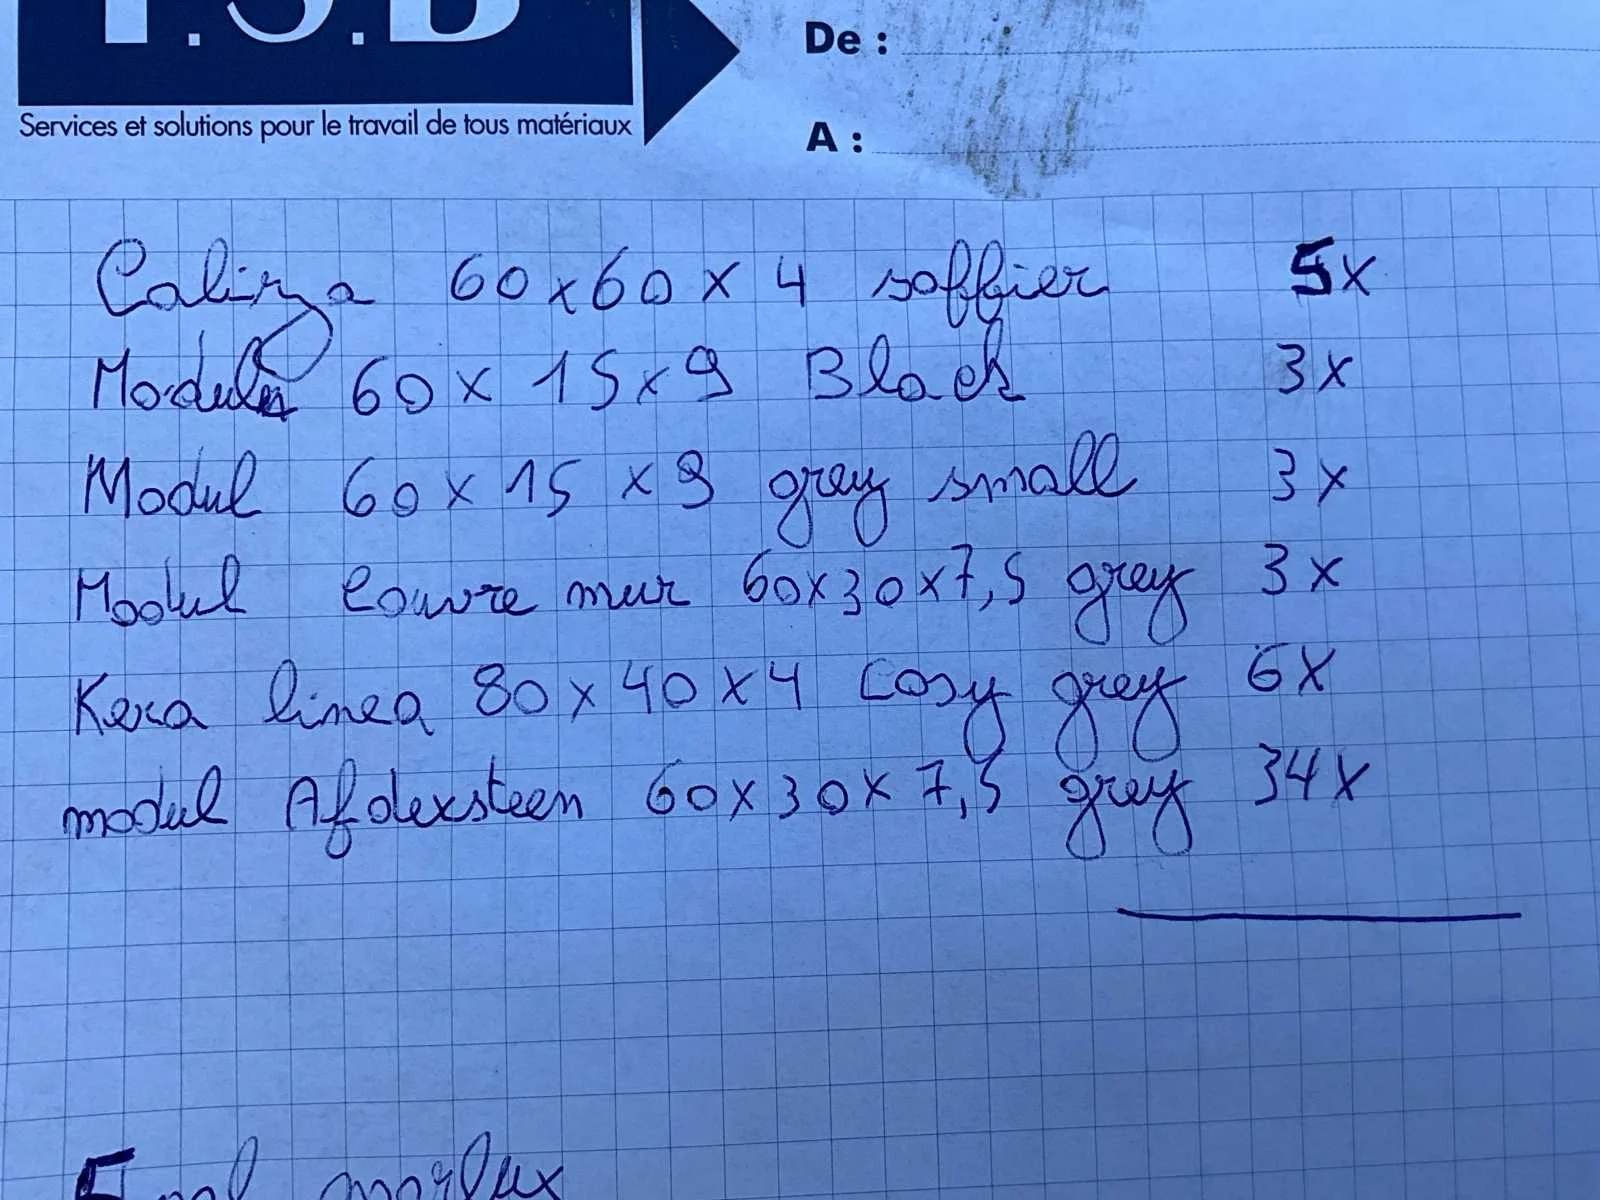 T.S.D
De :
Services et solutions pour le travail de tous matériaux
A :
Calinza 60x60x4 soffier 5x
Modul 60x15x9 Black 3x
Modul 60x15x9 grey small 3x
Modul couvre mur 60x30x7,5 grey 3x
Kera linea 80x40x4 Cosy grey 6x
modul Afdexsteen 60x30x7,5 grey 34x
marlux